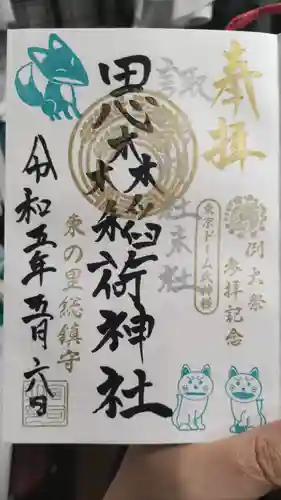 奉拝
例大祭
参拝記念
諏訪神社末社
東京ドーム氏神様
思森稲荷神社
東の里総鎮守
令和五年五月六日